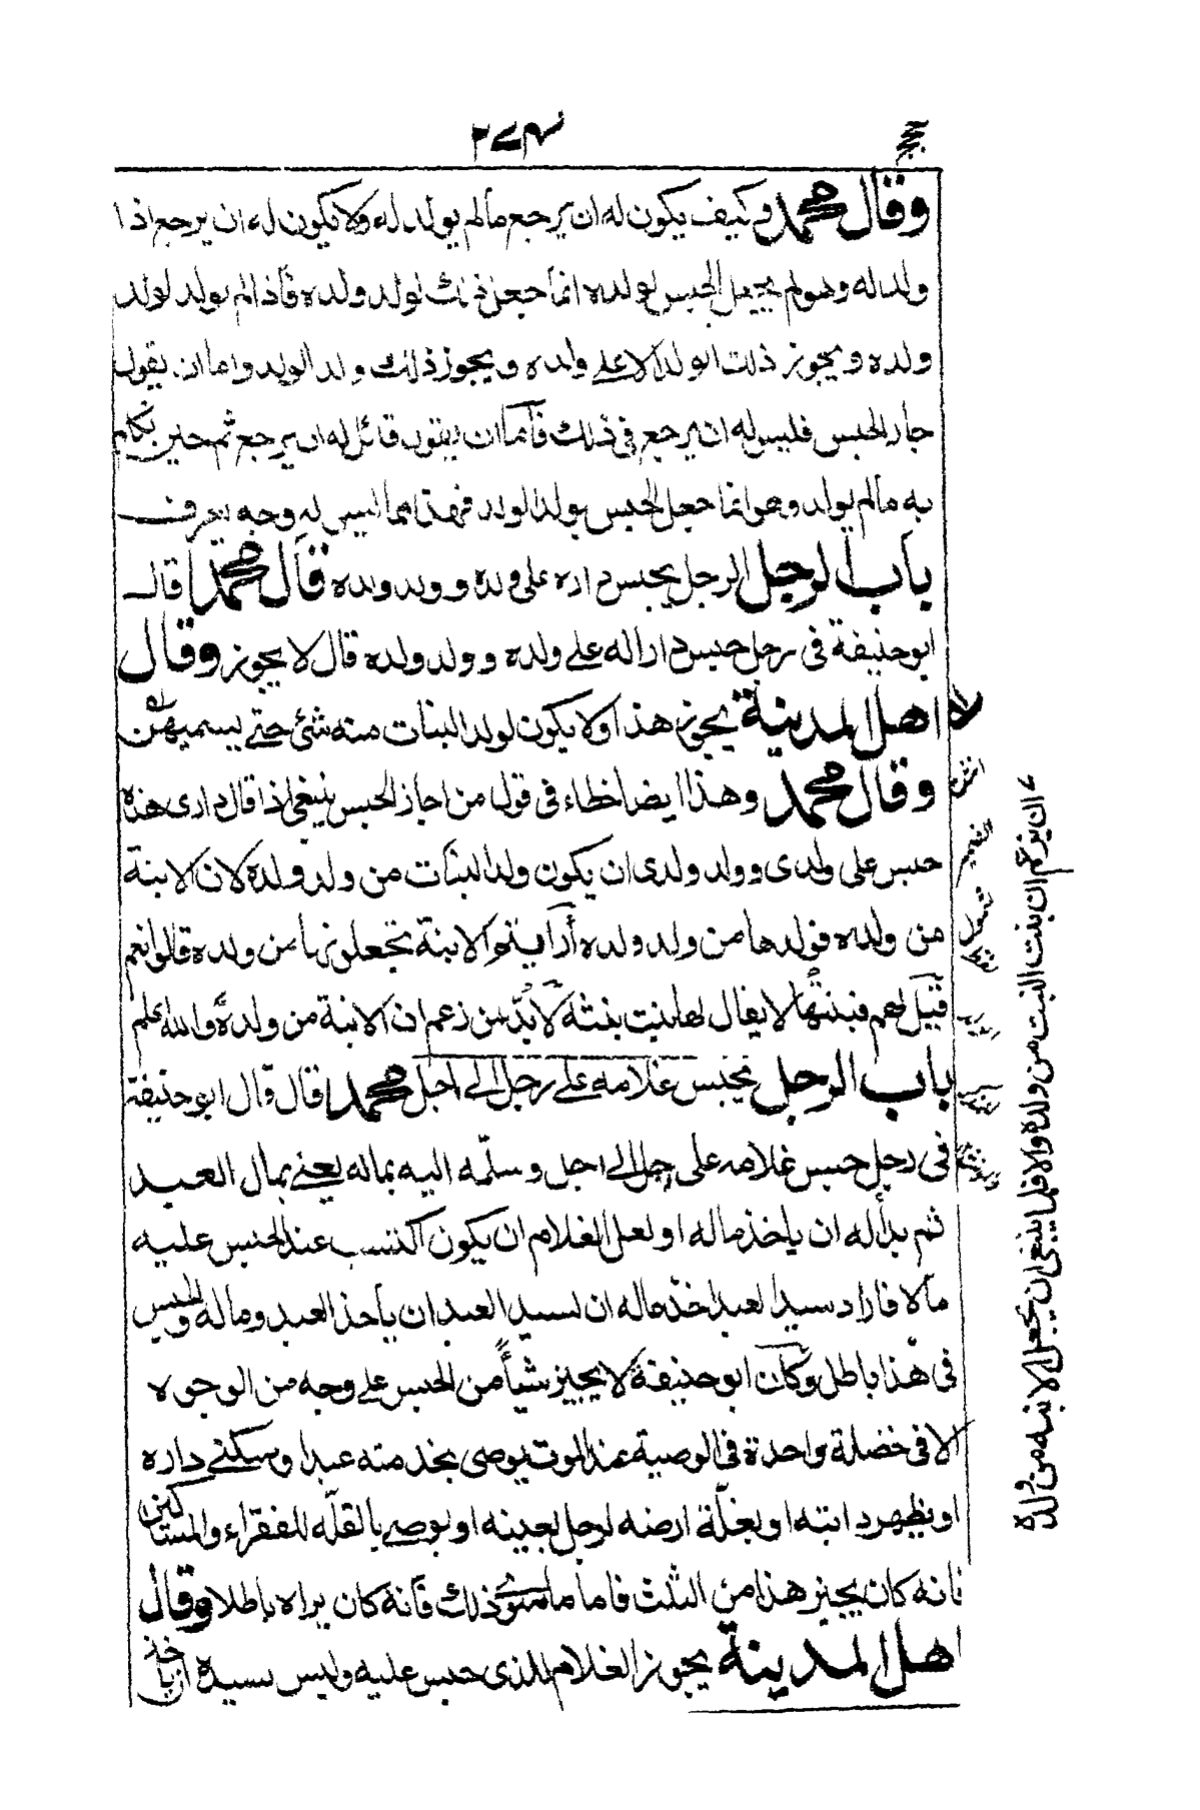 وقال محمد وكيف يكون له ان يرجع مالم يولد له ولا يكون له ان يرجع اذا
ولد له وهو لم يجعل الحبس لولده انما جعل ذلك لولد ولده فاذا لم يولد لولد
ولده ويجوز ذلك الولد الا على ولده ويجوز ذلك ولد الولد واما ان يقول
جاز الحبس فليس له ان يرجع في ذلك فاما ان يقول قائل له ان يرجع ثم حين تكلم
به مالم يولد وهو انما جعل الحبس لولد الولد فهذا مما ليس له وجه يعرف
باب الرجل الرجل يحبس داره على ولده وولد ولده قال محمد قال
ابو حنيفة في رجل حبس دارا له على ولده وولد ولده قال لا يجوز وقال
اهل المدينة يجوز هذا ولا يكون لولد البنات منه شئ حتى يسميهن له
وقال محمد وهذا ايضا خطاء في قول من اجاز الحبس ينبغي اذا قال داري هذه
حبس على ولدي وولد ولدي ان يكون ولد البنات من ولد ولده لان الابنة
من ولده فولدها من ولد ولده أرايتم الابنة تجعلونها من ولده قالوا نعم
قيل لهم فبنتها لا يقال لها بنت بنته لا بد من زعم ان الابنة من ولده والله اعلم
باب الرجل يحبس غلامه على رجل الى اجل محمد قال قال ابو حنيفة
في رجل حبس غلامه على رجل الى اجل وسلّمه اليه بماله يعني بمال العبد
ثم بدا له ان ياخذ ماله او لعل الغلام ان يكون اكتسب عند الحبس عليه
مالا فاراد سيد العبد اخذ ماله ان لسيد العبد ان يأخذ العبد وماله والحبس
في هذا باطل وكان ابو حنيفة لا يجيز شيأ من الحبس على وجه من الوجوه
الا في خصلة واحدة في الوصية عند الموت يوصي بخدمته عبدا وسكنى داره
او بظهر دابته او بغلّة ارضه لرجل بعينه او يوصي بالغلّة للفقراء والمساكين
فانه كان يجيز هذا من الثلث فاما ما سوى ذلك فانه كان يراه باطلا وقال
اهل المدينة يجوز الغلام للذي حبس عليه وليس لسيده ان ياخذ
ان يزعم ان بنت البنت من ولده والا فما ينبغي ان يجعل الابنه من ولده